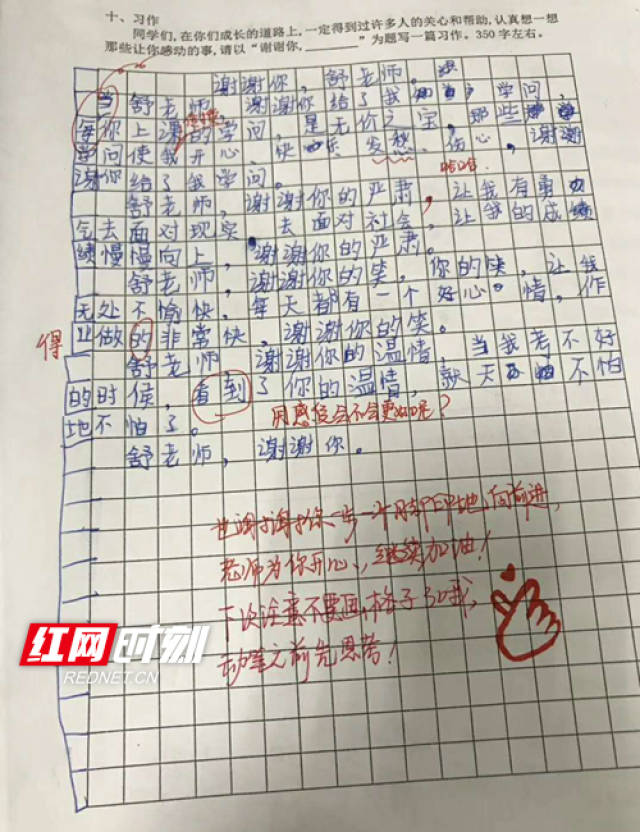 十、习作
同学们,在你们成长的道路上,一定得到过许多人的关心和帮助,认真想一想
那些让你感动的事,请以“谢谢你,______”为题写一篇习作。350字左右。
谢谢你,舒老师。
舒老师,谢谢你给了我学问,
每你上课的学问,是无价之宝,那些
学问使我开心、快乐、发愁、伤心,谢谢
谢你给了我学问。
舒老师,谢谢你的严肃,让我有勇
气去面对现实,去面对社会,让我的成绩
绩慢慢向上,谢谢你的严肃。
舒老师,谢谢你的笑,你的笑,让我
无处不愉快,每天都有一个好心情,作
业做的非常快,谢谢你的笑。
得
舒老师,谢谢你的温情,当我考不好
的时候,看到了你的温情,就天不怕
地不怕了。
用感受会不会更好呢?
舒老师,谢谢你。
谢谢你一步一个脚印地向前进,
老师为你开心,继续加油!
下次注意不要画格子了哦,
动笔之前先思考!
红网时刻
REDNET.CN